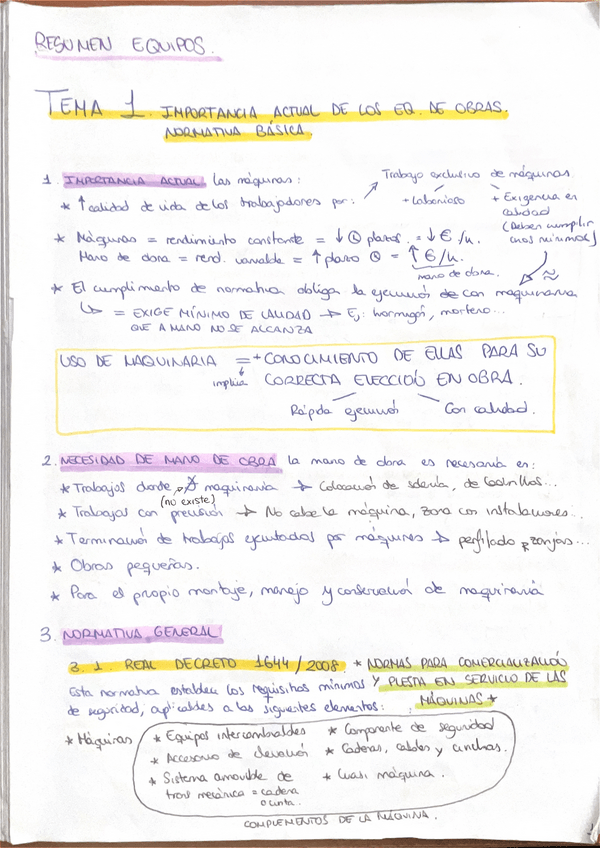 RESUMEN EQUIPOS.
TEMA 1. IMPORTANCIA ACTUAL DE LOS EQ. DE OBRAS.
NORMATIVA BÁSICA.
1. IMPORTANCIA ACTUAL. Las máquinas:
* ↑ calidad de vida de los trabajadores por: ↗
Trabajo exclusivo de máquinas
+ Laborioso
+ Exigencia en
calidad
(Deben cumplir
unos mínimos)
* Máquinas = rendimiento constante = ↓ plazos. = ↓ €/u.
Mano de obra = rend. variable = ↑ plazo = ↑ €/u.
mano de obra.
≈
* El cumplimento de normativa obliga la ejecución de con maquinaria
↳ = EXIGE MÍNIMO DE CALIDAD → Ej: hormigón, mortero...
QUE A MANO NO SE ALCANZA
USO DE MAQUINARIA = + CONOCIMIENTO DE ELLAS PARA SU
implica CORRECTA ELECCIÓN EN OBRA.
Rápida ejecución Con calidad.
2. NECESIDAD DE MANO DE OBRA La mano de obra es necesaria en:
* Trabajos donde ∄ maquinaria → Colocación de solería, de ladrillos...
(no existe)
* Trabajos con precisión → No cabe la máquina, zona con instalaciones...
* Terminación de trabajos ejecutados por máquinas → perfilado zanjas...
* Obras pequeñas.
* Para el propio montaje, manejo y conservación de maquinaria
3. NORMATIVA GENERAL
3.1. REAL DECRETO 1644/2008. * NORMAS PARA COMERCIALIZACIÓN
Y PUESTA EN SERVICIO DE LAS
MÁQUINAS *
Esta normativa establece los requisitos mínimos
de seguridad, aplicables a los siguientes elementos:
* Máquinas
* Equipos intercambiables
* Accesorio de elevación
* Sistema amovible de
trans mecánica = cadena
o cinta.
* Componente de seguridad
* Cadenas, cables y cinchas.
* Cuasi máquina.
COMPLEMENTOS DE LA MÁQUINA.